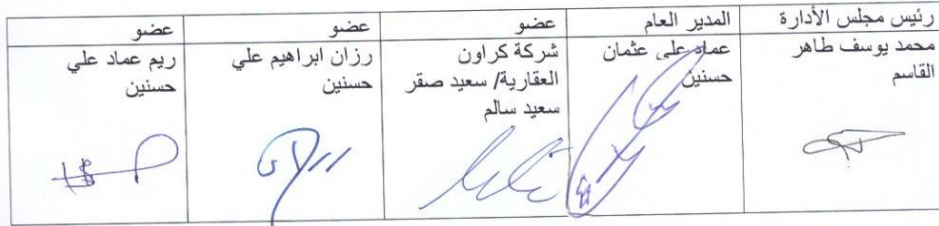 رئيس مجلس الأدارة
المدير العام
عضو
عضو
عضو
محمد يوسف طاهر
القاسم
عماد علي عثمان
حسنين
شركة كراون
العقارية/ سعيد صقر
سعيد سالم
رزان ابراهيم علي
حسنين
ريم عماد علي
حسنين